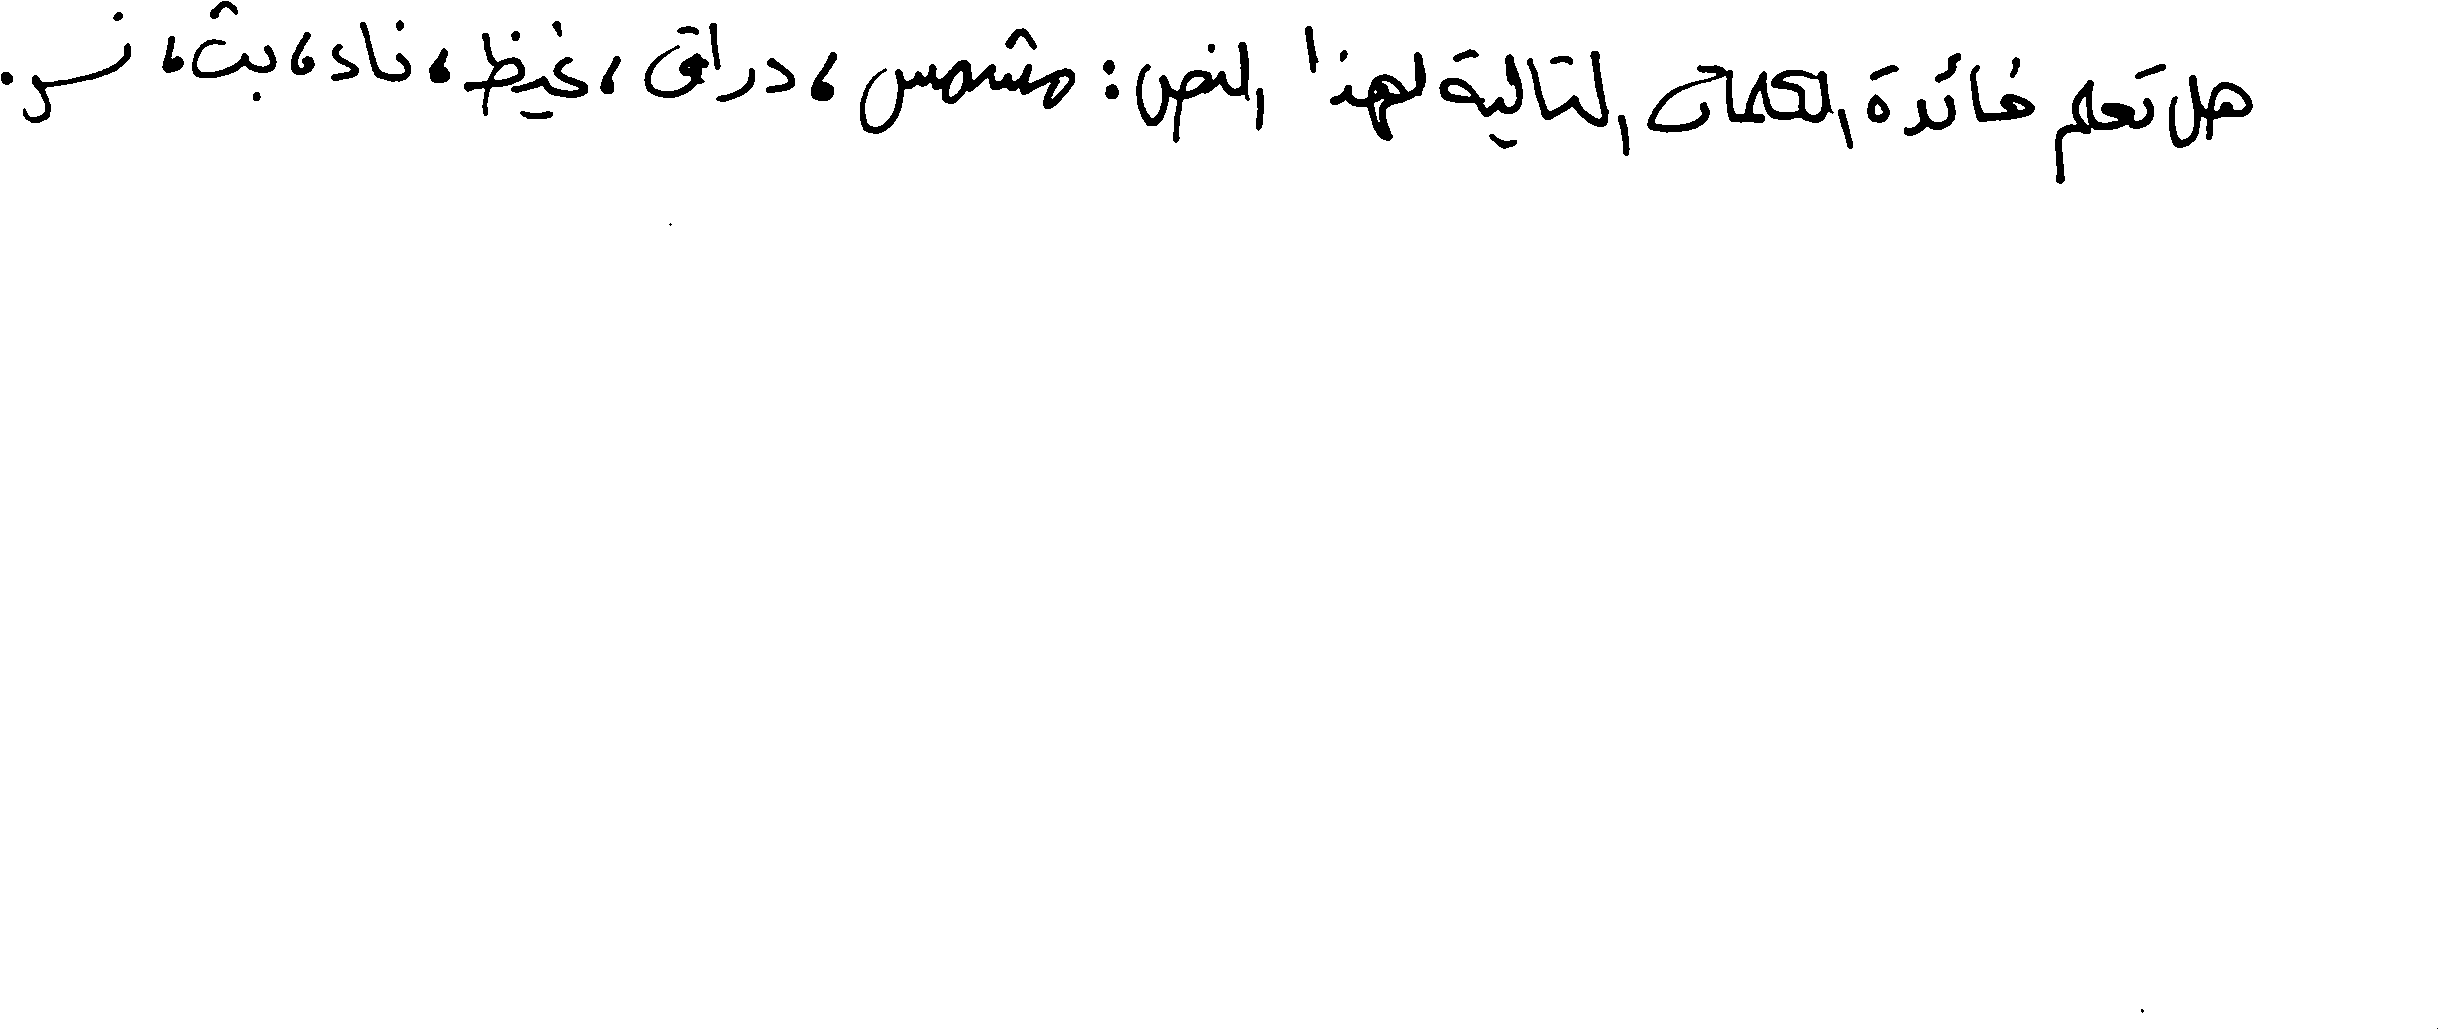 هل تعلم فائدة الكلمات التالية لهذا النص: مشمس، دراق، غيظ، ناد، بث، نس.